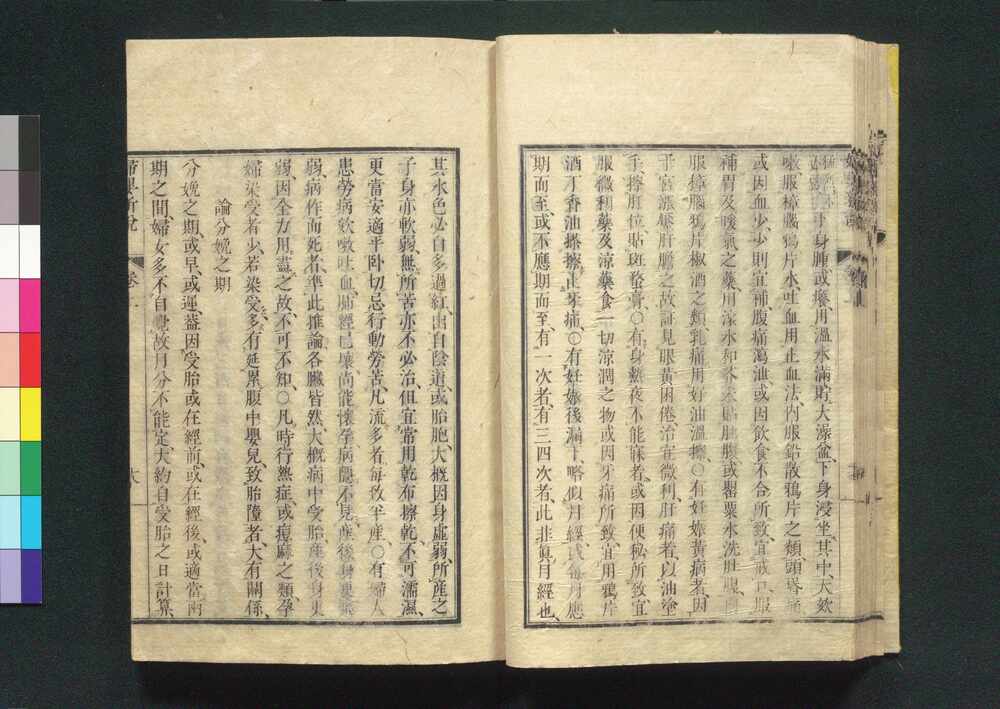 於身腫或癢用溫水滿貯大澡盆下身浸坐其中、大欬
嗽服樟腦鴉片水、吐血用止血法、內服鉛散鴉片之類、頭暈
或因血少、少則宜補、腹痛瀉泄或因飲食不合所致、宜戒口服
補胃及煖氣之藥、用
服樟腦鴉片椒酒之類、乳痛用好油溫擦○有妊娠黃病者、因
子宮漲壓肝膽之故、証見眼黃困倦、治宜微利、肝痛者、以油塗
手擦肝位、貼斑蝥膏○有身熱夜不能寐者、或因便秘所致、宜
服微利藥及涼藥、食一切涼潤之物、或因牙痛所致、宜用鴉片
酒丁香油搽擦止牙痛、○有妊娠後漏下、略似月經、或每月應
期而至、或不應期而至、有一次者、有三四次者、此非眞月經也、
其水色必自多過紅、出自陰道、或胎胞、大概因身虛弱、所產之
子身亦軟弱、無所苦亦不必治、但宜常用乾布擦乾、不可濡濕、
更當安適平臥、切忌行動勞苦、凡流多者、每致半產、○有婦人
患勞病、欬嗽吐血、肺經已壞、尚能懷孕、病隱不見、產後身更
弱、病作而死者、準此推論、各臟皆然、大概病中受胎、產後身更
弱、因全力用盡之故、不可不知、○凡時行熱症、或痘麻之類、孕
婦染受者少、若染受多有延累腹中嬰兒、致胎墮者、大有關係、
論分娩之期
分娩之期、或早、或遲、葢因受胎或在經前、或在經後、或適當兩
期之間、婦女多不自覺、故月分不能定、大約自受胎之日計算、
婦嬰新說